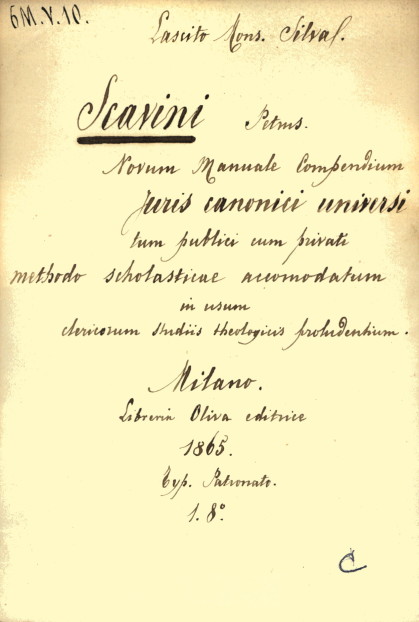 6M.V.10.
Lascito Mons. Silval.
Scavini Petrus.
Novum Manuale Compendium
Juris canonici universi
tum publici cum privati
methodo scholasticae accomodatum
in usum
clericorum studiis theologicis proludentium.
Milano.
Libreria Oliva editrice
1865.
Typ. Patronato.
1. 8º.
C